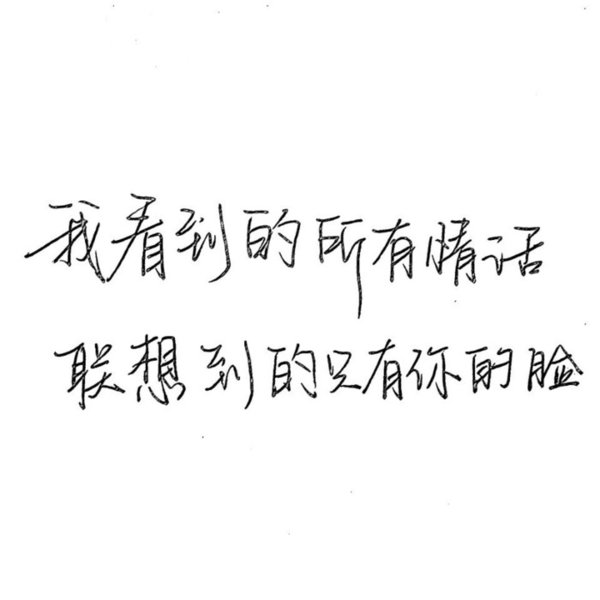 我看到的所有情话
联想到的只有你的脸